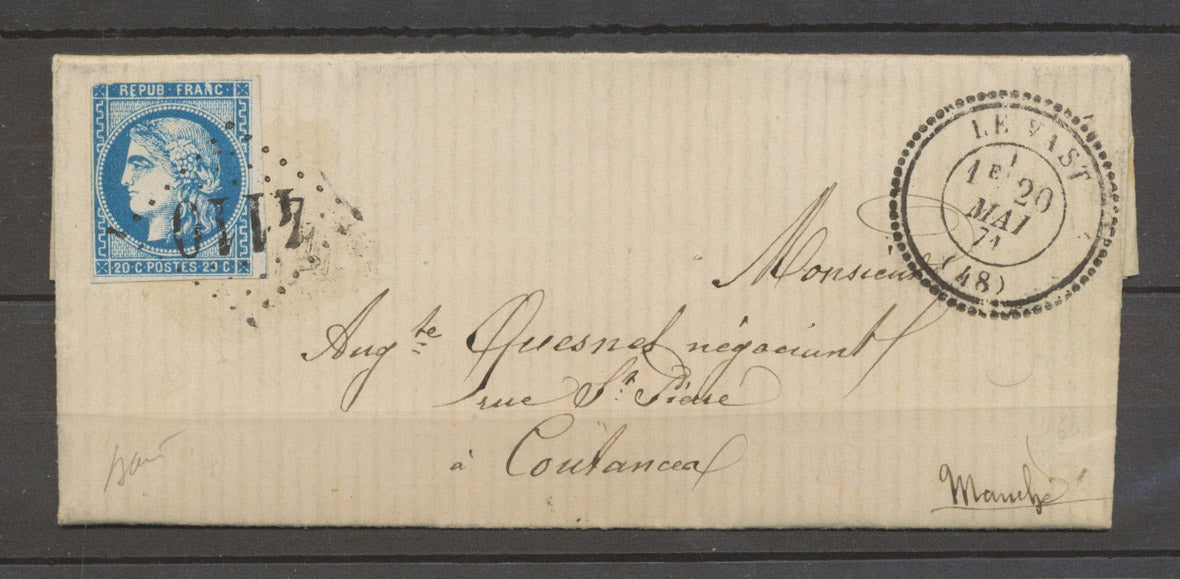 REPUB · FRANC ·
20 · C · POSTES · 20 · C ·
LE VAST
1E
20
MAI
71
(48)
Monsieur
Augte Quesnel négociant
rue St Pierre
à Coutances
Manche